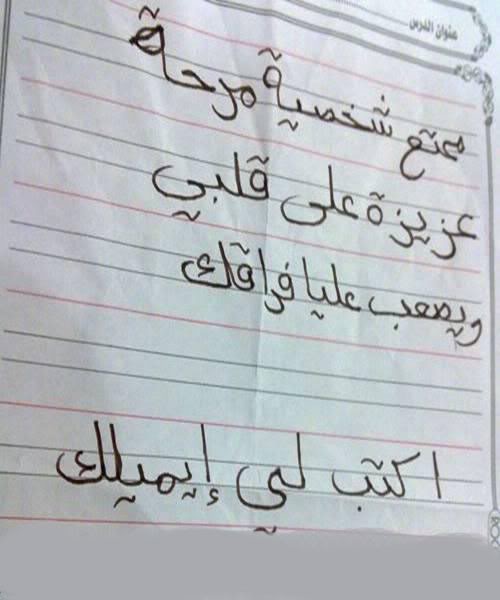 عنوان الدرس
ممتع شخصية مرحة
عزيزة على قلبي
ويصعب عليا فراقك
اكتب لي إيميلك